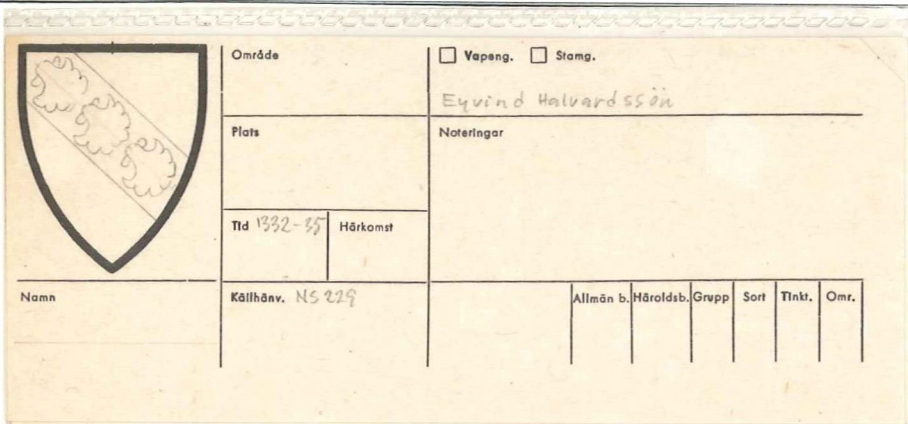 Område
☐ Vapeng. ☐ Stamg.
Eyvind Halvardssön
Plats
Noteringar
Tid 1332-35
Härkomst
Namn
Källhänv. NS 229
Allmän b. Häroldsb. Grupp Sort Tinkt. Omr.